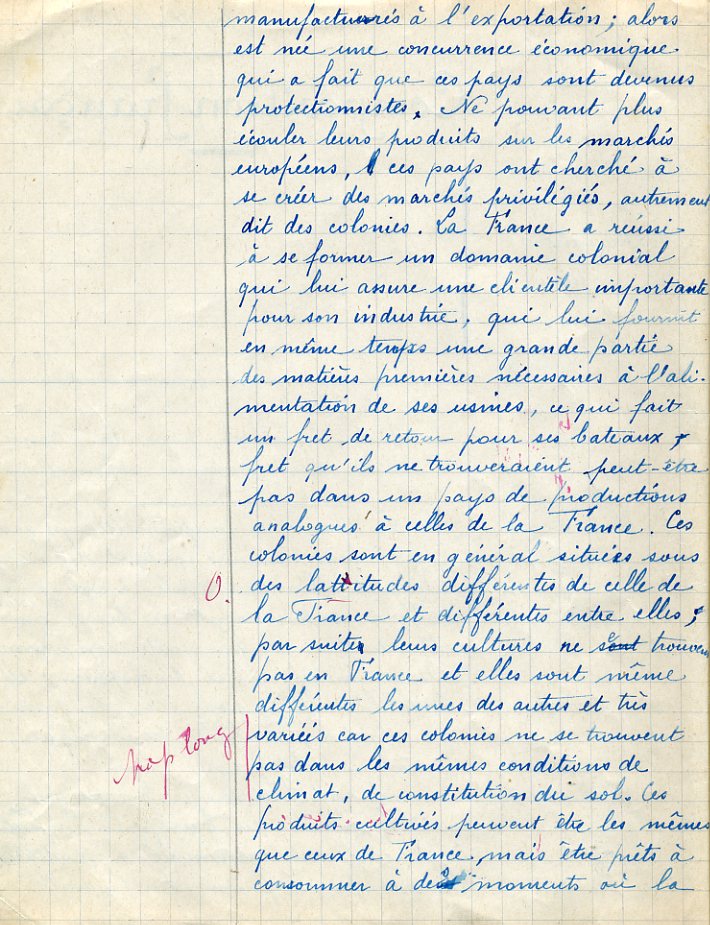 manufacturés à l'exportation ; alors
est née une concurrence économique
qui a fait que ces pays sont devenus
protectionnistes. Ne pouvant plus
écouler leurs produits sur les marchés
européens, ces pays ont cherché à
se créer des marchés privilégiés, autrement
dit des colonies. La France a réussi
à se former un domaine colonial
qui lui assure une clientèle importante
pour son industrie, qui lui fournit
en même temps une grande partie
des matières premières nécessaires à l'ali-
mentation de ses usines, ce qui fait
un fret de retour pour ses bateaux,
fret qu'ils ne trouveraient peut-être
pas dans un pays de productions
analogues à celles de la France. Ces
colonies sont en général situées sous
O. des latitudes différentes de celle de
la France et différentes entre elles ;
par suite, leurs cultures ne se trouvent
pas en France et elles sont même
différentes les unes des autres et très
trop long variées car ces colonies ne se trouvent
pas dans les mêmes conditions de
climat, de constitution du sol. Ces
produits cultivés peuvent être les mêmes
que ceux de France mais être prêts à
consommer à des moments où la